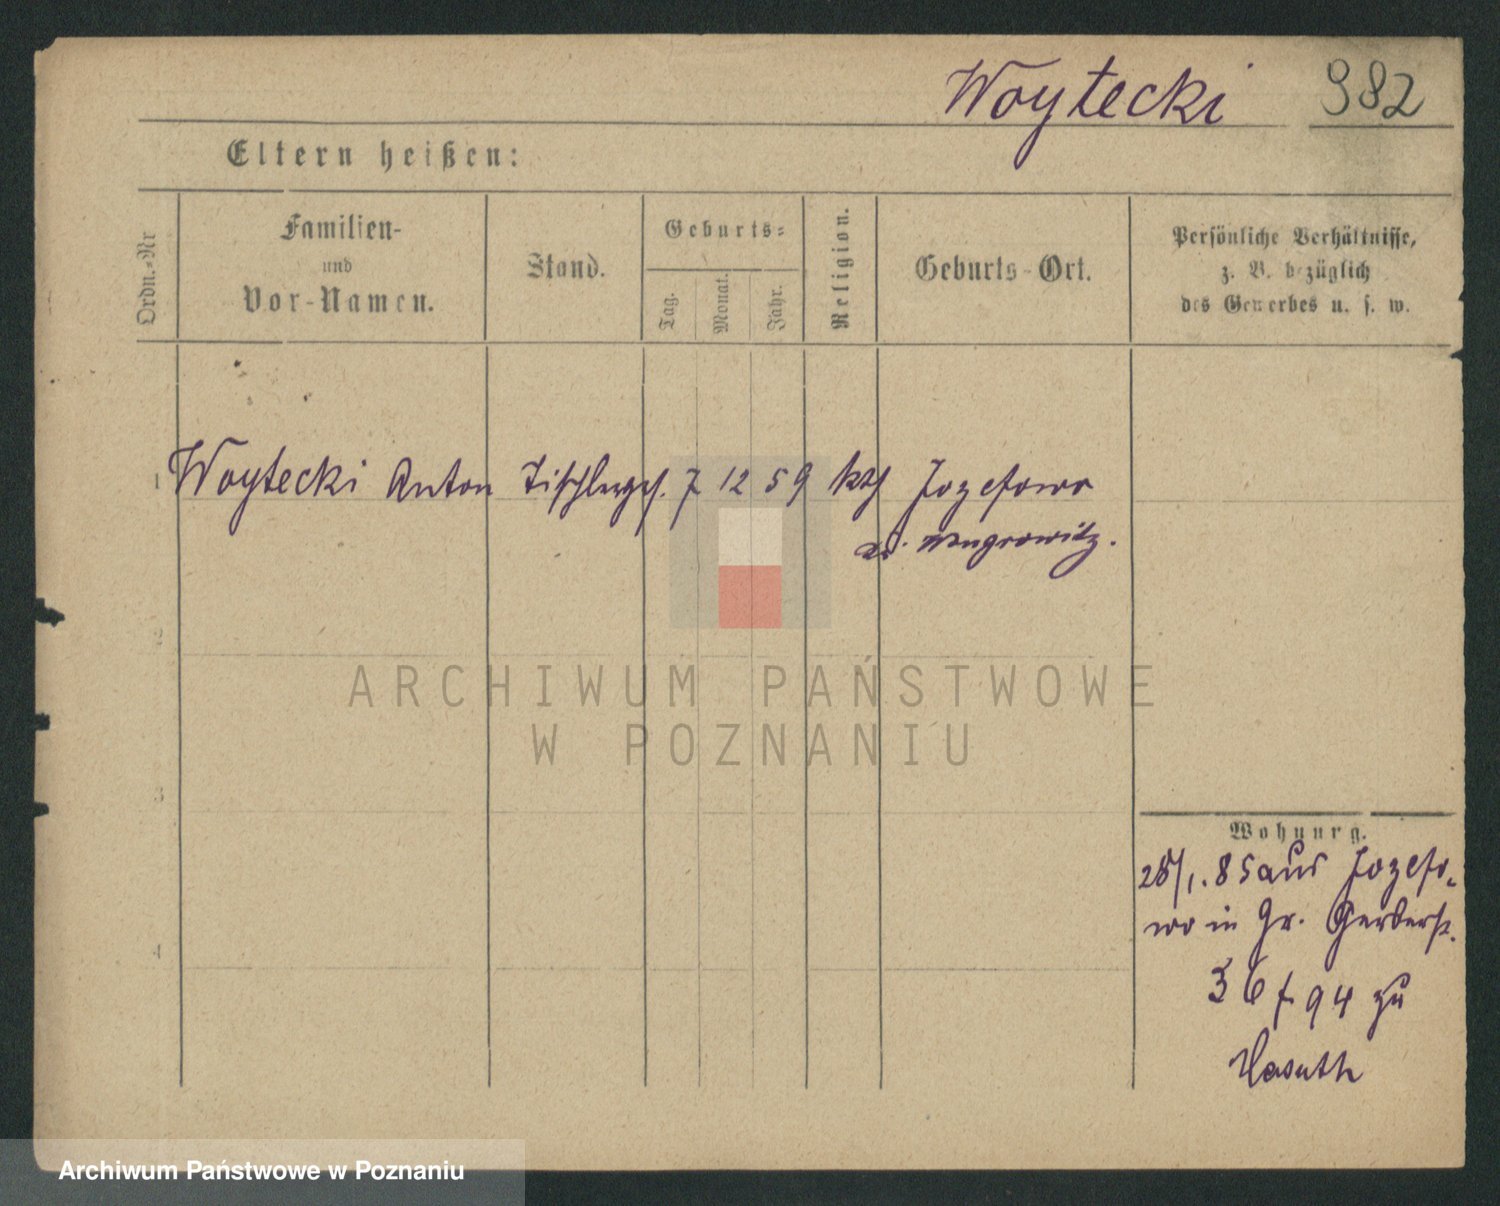 Woytecki 982
Eltern heißen:
Ordn.-Nr
Familien-
und
Vor-Namen.
Stand.
Geburts-
Tag.
Monat.
Jahr.
Religion.
Geburts-Ort.
Persönliche Verhältnisse,
z. B. bezüglich
des Gewerbes u. s. w.
1 Woytecki Anton Tischlerges. 7 12 59 kth Jozefowo
Kr. Wongrowitz.
2
3
4
Wohnung.
28/1. 85 aus Jozefo-
wo in Gr. Gerberst.
36 f 94 zu
ARCHIWUM PAŃSTWOWE
W POZNANIU
Archiwum Państwowe w Poznaniu